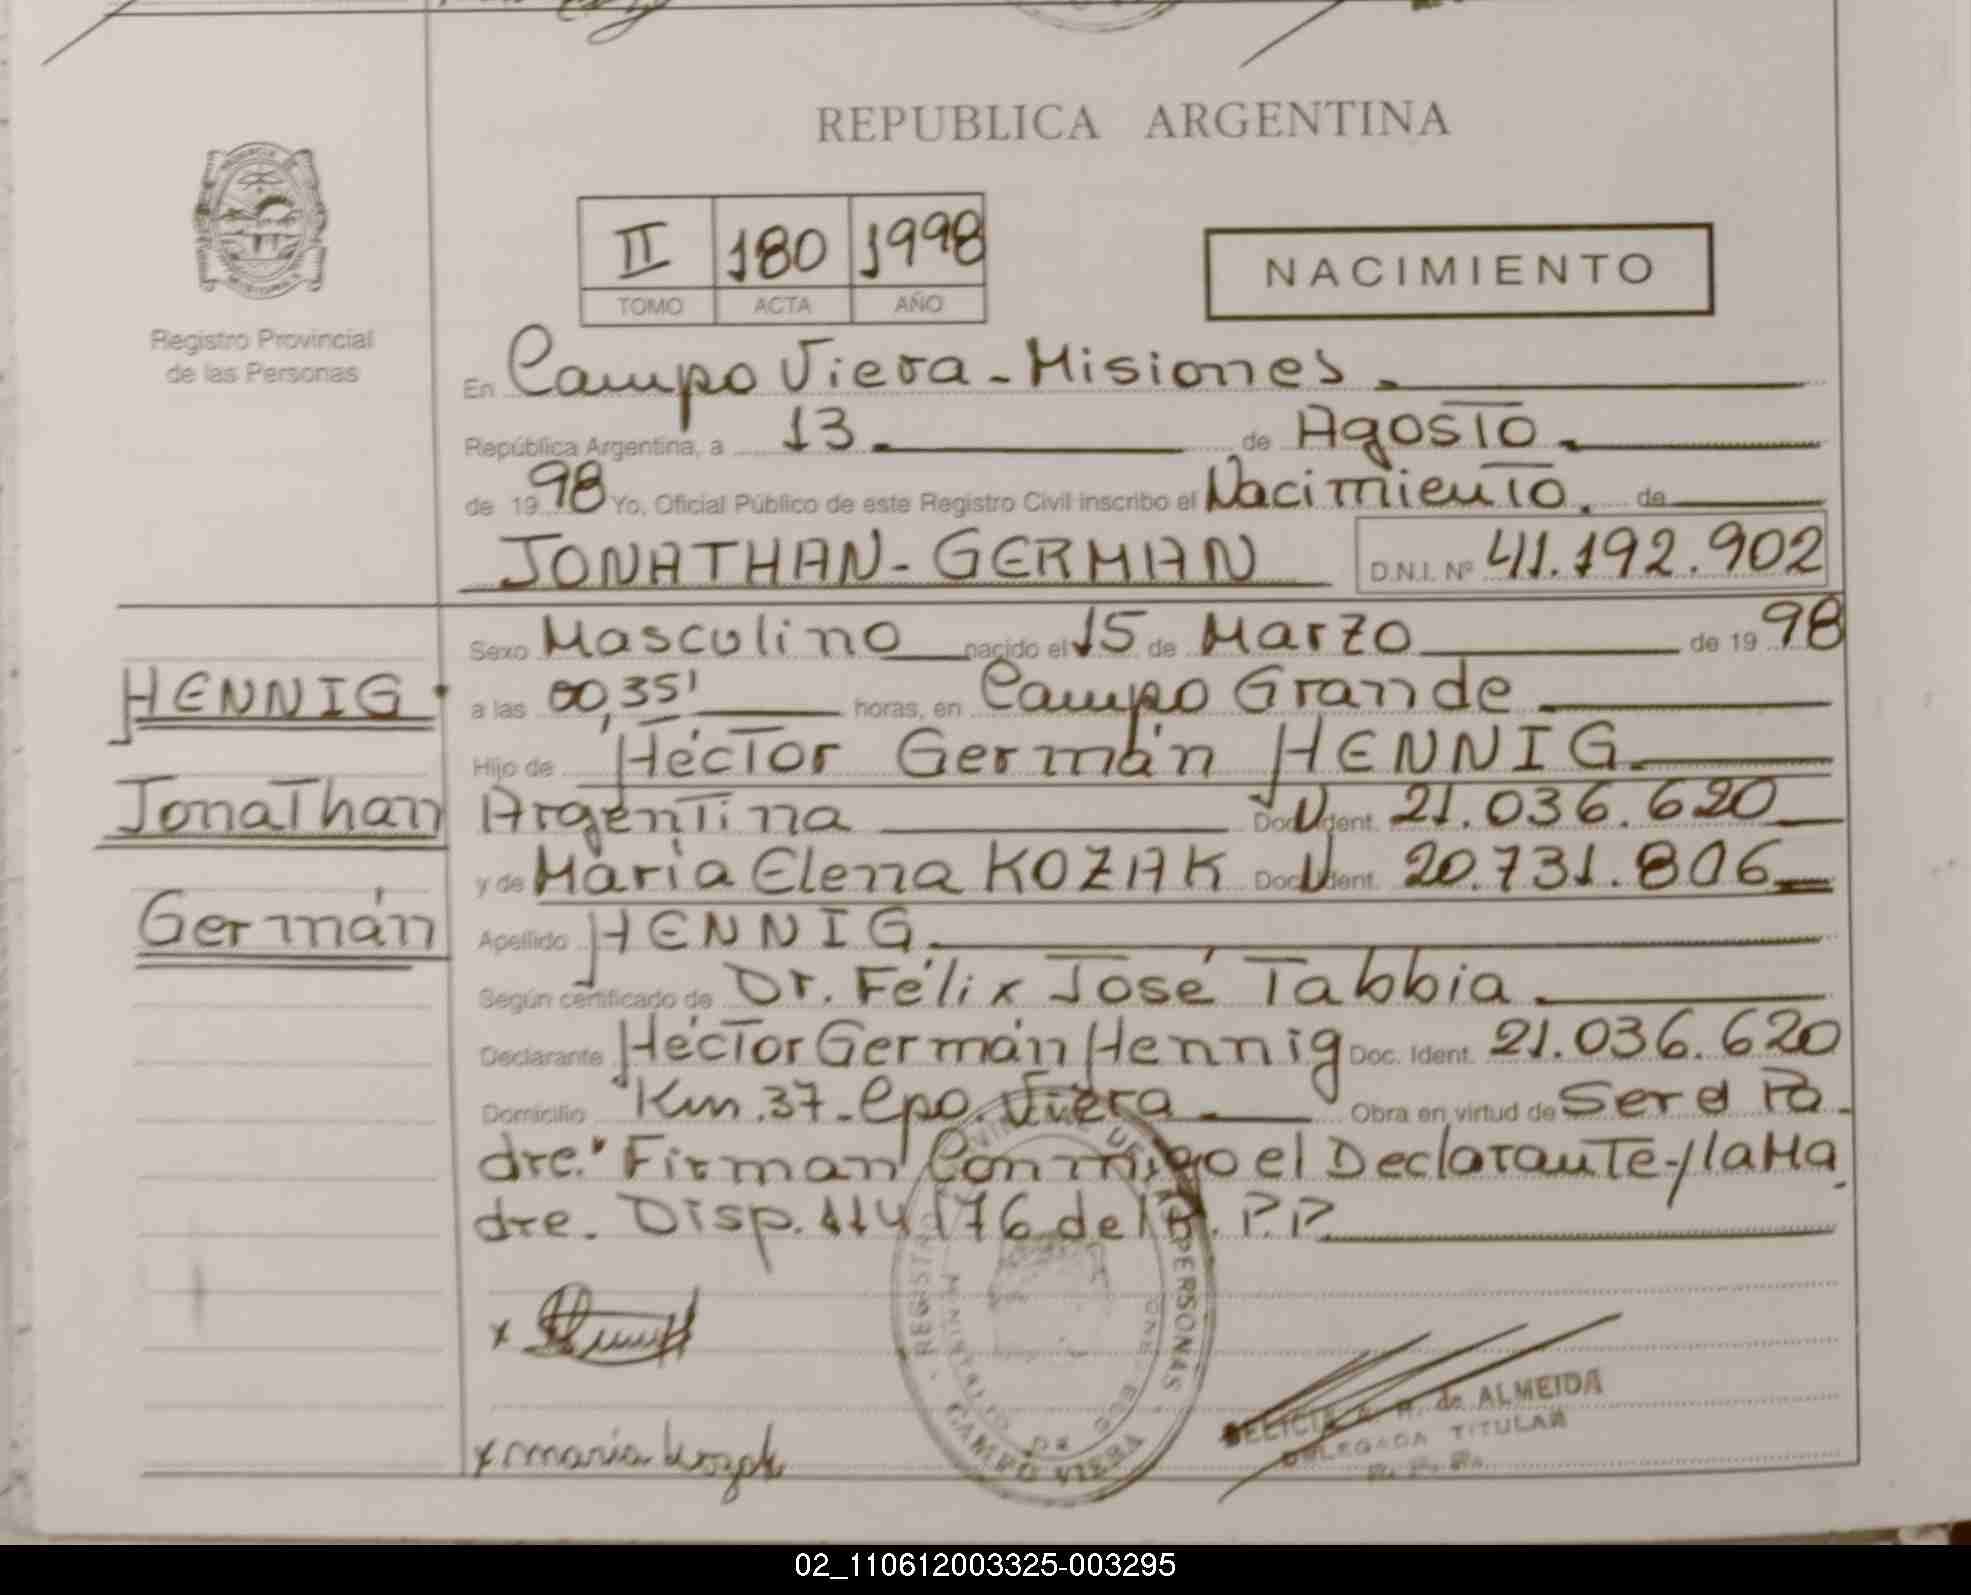 REPUBLICA ARGENTINA
II 180 1998
TOMO ACTA AÑO
NACIMIENTO
Registro Provincial
de las Personas
En Campo Viera - Misiones.
República Argentina, a 13 de Agosto.
de 1998 Yo, Oficial Público de este Registro Civil inscribo el Nacimiento. de
JONATHAN - GERMAN D.N.I. Nº 41.192.902
HENNIG
Jonathan
Germán
Sexo Masculino nacido el 15 de Marzo de 1998
a las 00,35' horas, en Campo Grande
Hijo de Héctor Germán HENNIG.
Argentina Doc. Ident. 21.036.620
y de María Elena KOZAK Doc. Ident. 20.731.806
Apellido HENNIG.
Según certificado de Dr. Félix José Tabbia.
Declarante Héctor Germán Hennig Doc. Ident. 21.036.620
Domicilio Km. 37 - Cpo. Viera Obra en virtud de Ser el Pa-
dre." Firman Conmigo el Declarante y la Ma
dre. Disp. 114/76 del R.P.P.
REGISTRO PERSONAS
MINISTERIO DE
CAMPO VIERA
x maria kozak
de ALMEIDA
DELEGADA TITULAR
R. P. P.
02_110612003325-003295